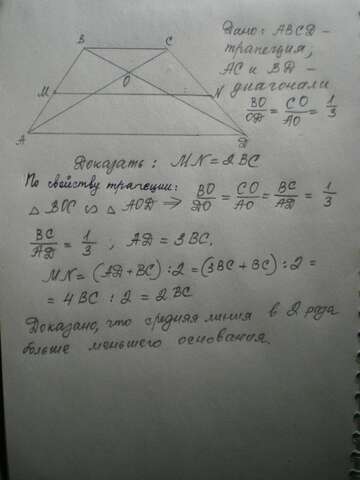 Дано: ABCD -
трапеция;
AC и BD -
диагонали
BO/OD = CO/AO = 1/3
B C
O
M N
A D
Доказать: MN = 2BC
По свойству трапеции:
△ BOC ∽ △ AOD ⇒ BO/DO = CO/AO = BC/AD = 1/3
BC/AD = 1/3 , AD = 3BC.
MN = (AD + BC) : 2 = (3BC + BC) : 2 =
= 4BC : 2 = 2BC
Доказано, что средняя линия в 2 раза
больше меньшего основания.